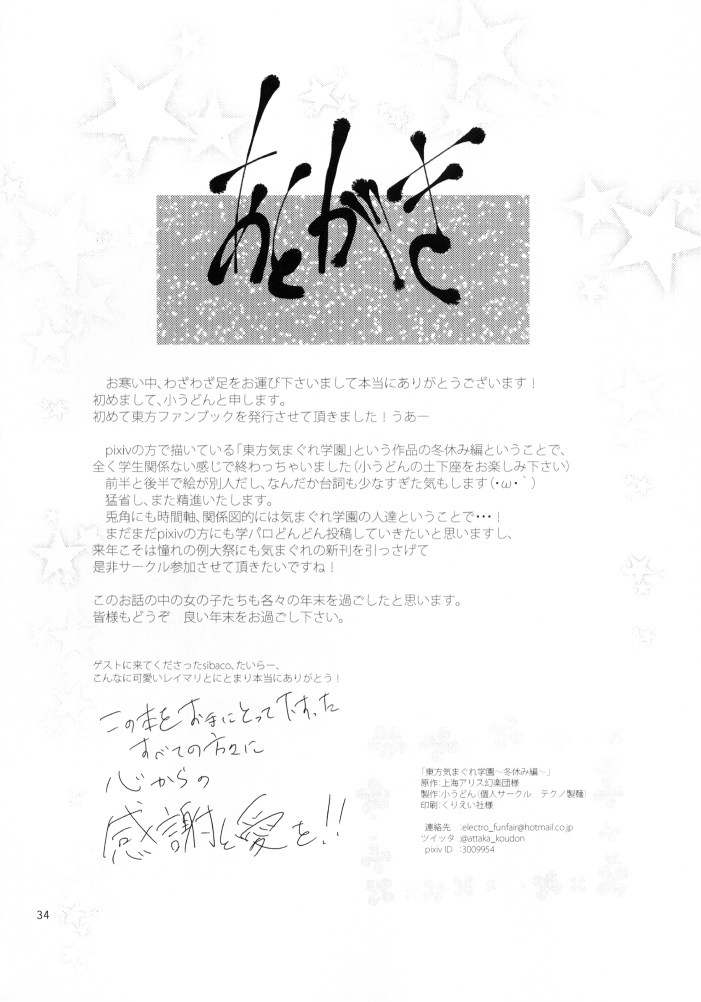 あとがき
お寒い中、わざわざ足をお運び下さいまして本当にありがとうございます！
初めまして、小うどんと申します。
初めて東方ファンブックを発行させて頂きました！うあー
pixivの方で描いている「東方気まぐれ学園」という作品の冬休み編ということで、
全く学生関係ない感じで終わっちゃいました（小うどんの土下座をお楽しみ下さい）
前半と後半で絵が別人だし、なんだか台詞も少なすぎた気もします（・ω・｀）
猛省し、また精進いたします。
兎角にも時間軸、関係図的には気まぐれ学園の人達ということで・・・！
まだまだpixivの方にも学パロどんどん投稿していきたいと思いますし、
来年こそは憧れの例大祭にも気まぐれの新刊を引っさげて
是非サークル参加させて頂きたいですね！
このお話の中の女の子たちも各々の年末を過ごしたと思います。
皆様もどうぞ　良い年末をお過ごし下さい。
ゲストに来てくださったsibaco、たいらー、
こんなに可愛いレイマリとにとまり本当にありがとう！
この本をお手にとって下さった
すべての方々に
心からの
感謝と愛を!!
「東方気まぐれ学園～冬休み編～」
原作：上海アリス幻楽団様
製作：小うどん（個人サークル　テクノ製麺）
印刷：くりえい社様
連絡先　：electro_funfair@hotmail.co.jp
ツイッタ　：@attaka_koudon
pixiv ID　：3009954
34